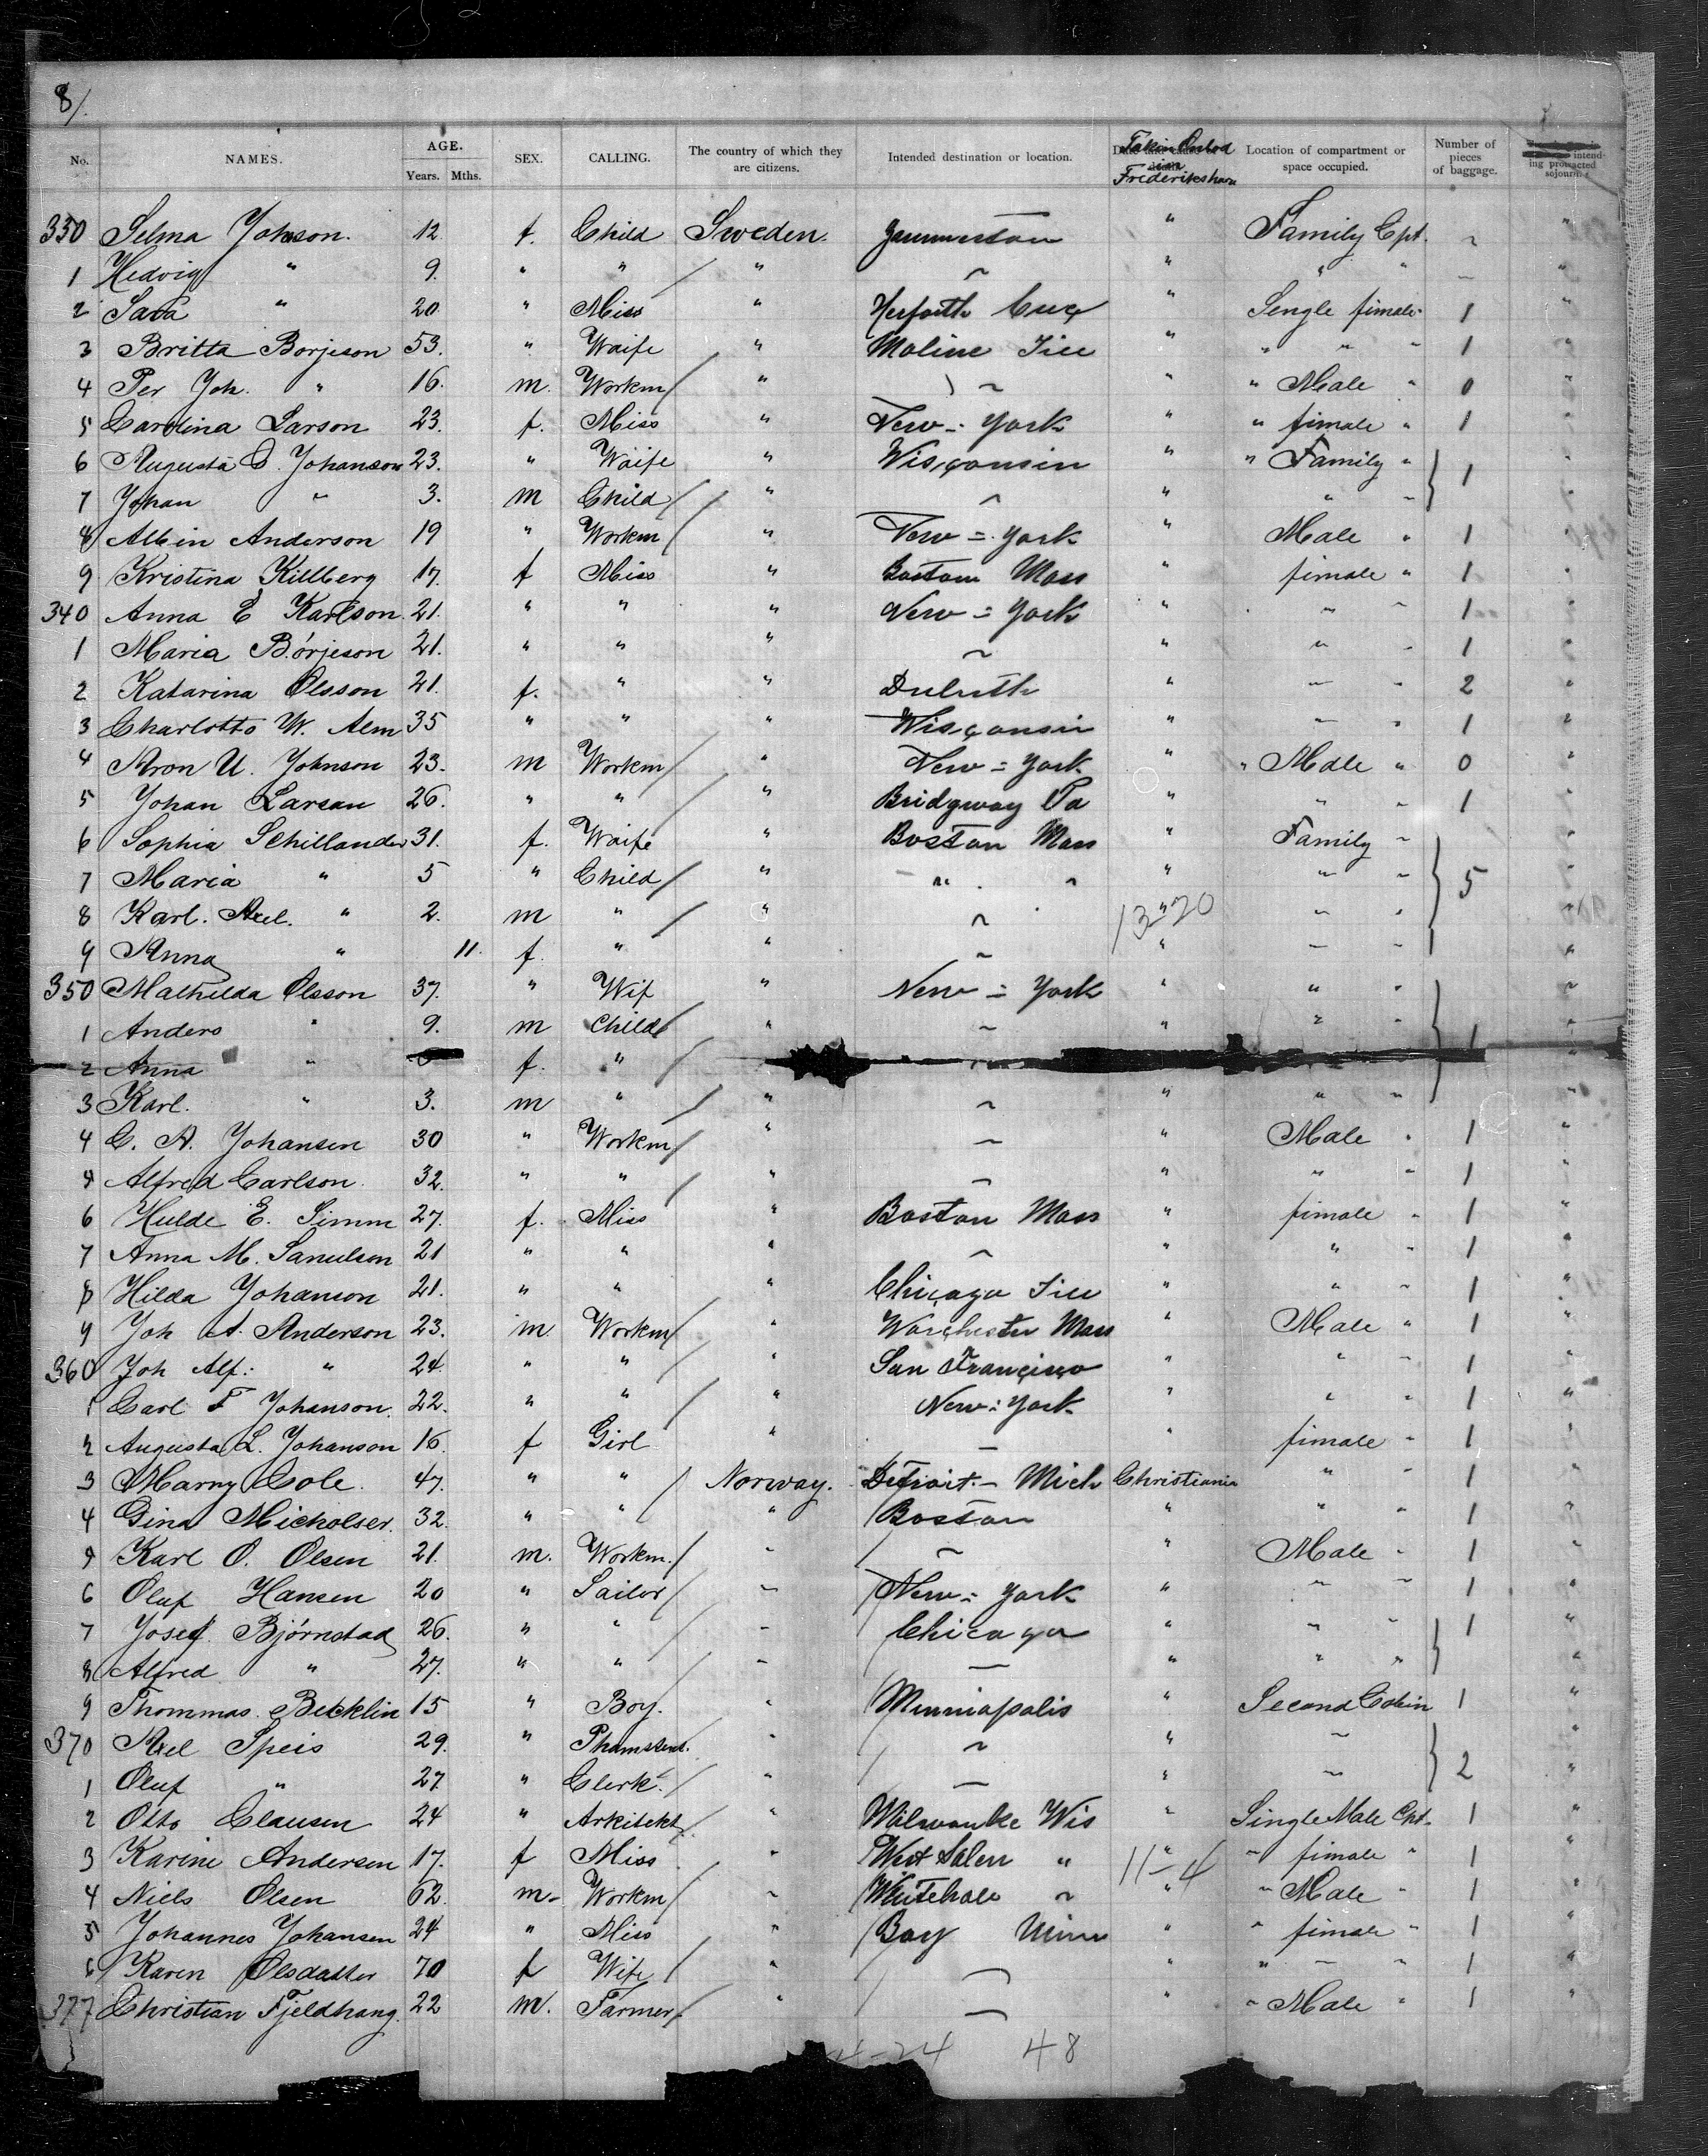 8/.
No. NAMES. AGE. Years. Mths. SEX. CALLING. The country of which they are citizens. Intended destination or location. Frederikshavn Location of compartment or space occupied. Number of pieces of baggage. intending protracted sojourn.
330 Selma Johnson. 12 f. Child Sweden. " Family Cpt. ~ "
1 Hedvig " 9. " " " ~ " " " ~ "
2 Sara " 20 " Miss " " Single fimale 1 "
3 Britta Borjeson 53. " Waife " Moline Ill " " " " 1 "
4 Per Joh. " 16. m. Workm " ~ " " Male " 0 "
5 Carolina Larson 23. f. Miss " New = York " " fimale " 1 "
6 Augusta C. Johanson 23. " Waife " Wisconsin " " Family " 1 "
7 Johan " 3. m Child " ~ " " " "
8 Albin Anderson 19 " Workm " New = York " Male " 1 "
9 Kristina Killberg 17. f Miss " Boston Mass " fimale " 1 "
340 Anna E Karlson. 21. " " " New = York " " " 1 "
1 Maria Börjeson 21. " " " ~ " " " 1 "
2 Katarina Olsson 21. f. " " Duluth " " " 2 "
3 Charlotto W. Alm 35 " " " Wisconsin " " " 1 "
4 Aron U. Johnson 23. m Workm " New = York " " Male " 0 "
5 Johan Larsan 26. " " " Bridgway Pa " " " 1 "
6 Sophia Schillander 31. f. Waife " Boston Mass " Family "
7 Maria " 5 " Child " " " " " " 5 "
8 Karl. Axel. " 2. m " " ~ " 13-20 " " "
9 Anna " 11. f. " " ~ " " " "
350 Mathilda Olsson 37. " Wif " New = York " " " "
1 Anders " 9. m Child " ~ " " " 1 "
2 Anna " f. "
3 Karl. " 3. m " " ~ " " " "
4 C. A. Johansen 30 " Workm " ~ " Male " 1 "
5 Alfred Carlson. 32. " " " ~ " " " 1 "
6 Hulde E. Simm 27. f. Miss " Boston Mass " fimale " 1 "
7 Anna M. Samulson 21 " " " ~ " " " 1 "
8 Hilda Johanson 21. " " " Chicago Ill " " " 1 "
9 Joh A. Anderson 23. m Workm " Worchester Mass " Male " 1 "
360 Joh Alf: " 24. " " " San Francisco " " " 1 "
1 Carl F Johanson. 22. " " " New = York " " " 1 "
2 Augusta L. Johanson 16. f Girl " ~ " fimale " 1 "
3 Marny Cole. 47. " " Norway. Detroit - Mich Christiania " " 1 "
4 Gina Micholser. 32. " " " Boston " " " 1 "
5 Karl O. Olsen 21. m. Workm. " ~ " Male " 1 "
6 Oluf Hansen 20 " Sailor " New = York " " " 1 "
7 Josef. Bjørnstad 26. " " " Chicago " " " 1 "
8 Alfred " 27. " " " ~ " " " "
9 Thommas Becklin 15 " Boy. " Minniapolis " Second Cabin 1 "
370 Axel Speis 29. " " ~ " ~ "
1 Oluf " 27. " Clerk. " ~ " ~ 2 "
2 Otto Clausen 24 " Arkitekt " Milwauke Wis " Single Male Cpt. 1 "
3 Karine Andersen 17. f Miss " West Salen " " 11-4 " fimale " 1 "
4 Niels Olsen 62. m. Workm " Whitehale " " " Male " 1 "
5 Johannes Johansen 24 " Miss " Bay Minn " " fimale " 1 "
6 Karen Olsdatter 70 f Wife " ~ " " " " 1 "
377 Christian Fjeldhang. 22 m. Farmer " ~ " " Male " 1 "
4-24 48